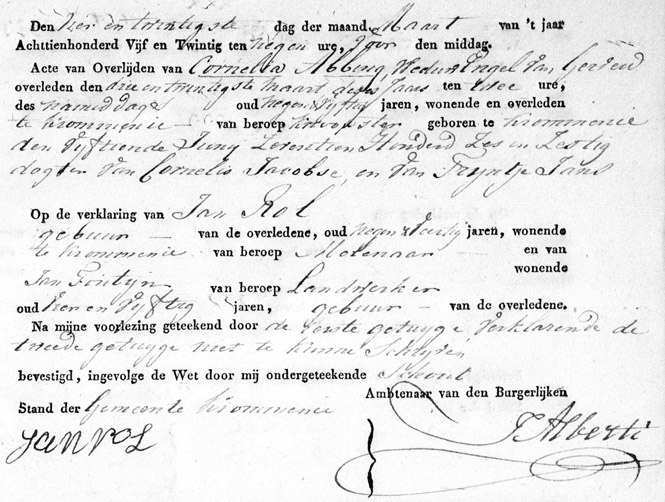 Den vier en twintigste dag der maand Maart van 't jaar
Achttienhonderd Vijf en Twintig ten negen ure, voor den middag.
Acte van Overlijden van Cornelia Abbing, Wedw Engel van
overleden den drie entwintigste maart dezes Jaars ten twee ure,
des namiddags oud negen & vyftig jaren, wonende en overleden
te Krommenie van beroep geboren te Krommenie
den vyftiende Juny Zeventien Honderd Zes en Zestig
dogter van Cornelis Jacobse, en van Tryntje Jans
Op de verklaring van Jan Rol
gebuur van de overledene, oud negen & jaren, wonende
te Krommenie van beroep Molenaar en van
wonende
Jan Fontyn van beroep Landwerker
oud vier en vyftig jaren, gebuur van de overledene.
Na mijne voorlezing geteekend door de eerste getuyge verklarende de
tweede getuyge niet te kunne schryven
bevestigd, ingevolge de Wet door mij ondergeteekende Schout
Ambtenaar van den Burgerlijken
Stand der Gemeente Krommenie
JAN ROL
Alberti